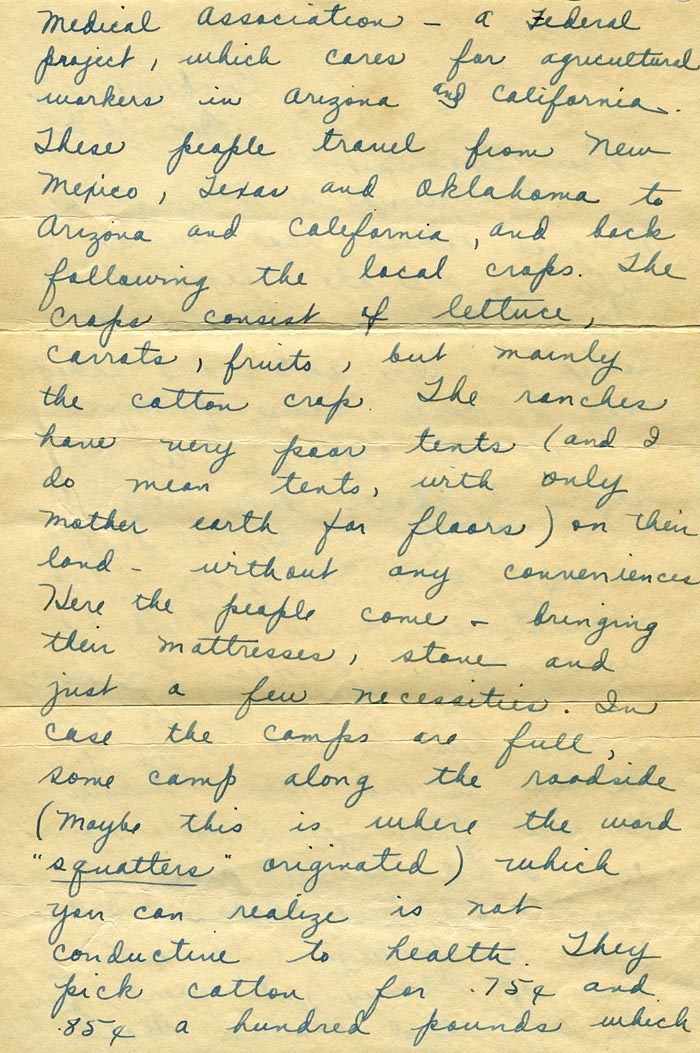 Medical Association - a Federal
project, which cares for agricultural
workers in Arizona and California.
These people travel from New
Mexico, Texas and Oklahoma to
Arizona and California, and back
following the local crops. The
crops consist of lettuce,
carrots, fruits, but mainly
the cotton crop. The ranches
have very poor tents (and I
do mean tents, with only
mother earth for floors) on their
land - without any conveniences
Here the people come - bringing
their mattresses, stove and
just a few necessities. In
case the camps are full,
some camp along the roadside
(Maybe this is where the word
"squatters" originated) which
you can realize is not
conductive to health. They
pick cotton for .75¢ and
.85¢ a hundred pounds which